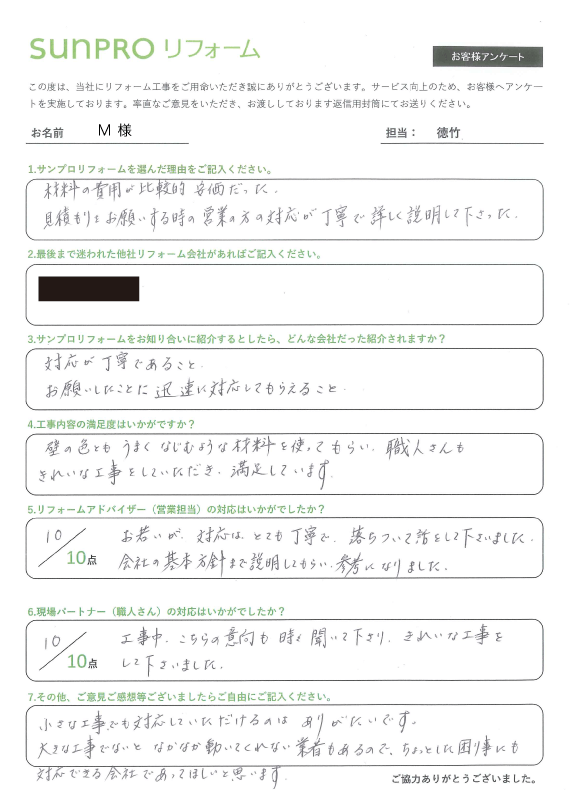 SUNPRO リフォーム
お客様アンケート
この度は、当社にリフォーム工事をご用命いただき誠にありがとうございます。サービス向上のため、お客様へアンケー
トを実施しております。率直なご意見をいただき、お渡ししております返信用封筒にてお送りください。
お名前 M 様 担当： 徳竹
1.サンプロリフォームを選んだ理由をご記入ください。
材料の費用が比較的 安価だった.
見積もりをお願いする時の営業の方の対応が丁寧で詳しく説明して下さった.
2.最後まで迷われた他社リフォーム会社があればご記入ください。
3.サンプロリフォームをお知り合いに紹介するとしたら、どんな会社だった紹介されますか？
対応が丁寧であること.
お願いしたことに迅速に対応してもらえること.
4.工事内容の満足度はいかがですか？
壁の色とも うまく なじむような材料を使ってもらい. 職人さんも
きれいな工事をしていただき. 満足しています.
5.リフォームアドバイザー（営業担当）の対応はいかがでしたか？
10/10点
お若いが. 対応は とても丁寧で. 落ちついて話をして下さいました.
会社の基本方針まで説明してもらい. 参考になりました.
6.現場パートナー（職人さん）の対応はいかがでしたか？
10/10点
工事中. こちらの意向も 時々聞いて下さり. きれいな工事を
して下さいました.
7.その他、ご意見ご感想等ございましたらご自由にご記入ください。
小さな工事でも対応していただけるのは ありがたいです.
大きな工事でないと なかなか動いてくれない業者もあるので. ちょっとした困り事にも
対応できる会社であってほしいと思います.
ご協力ありがとうございました。